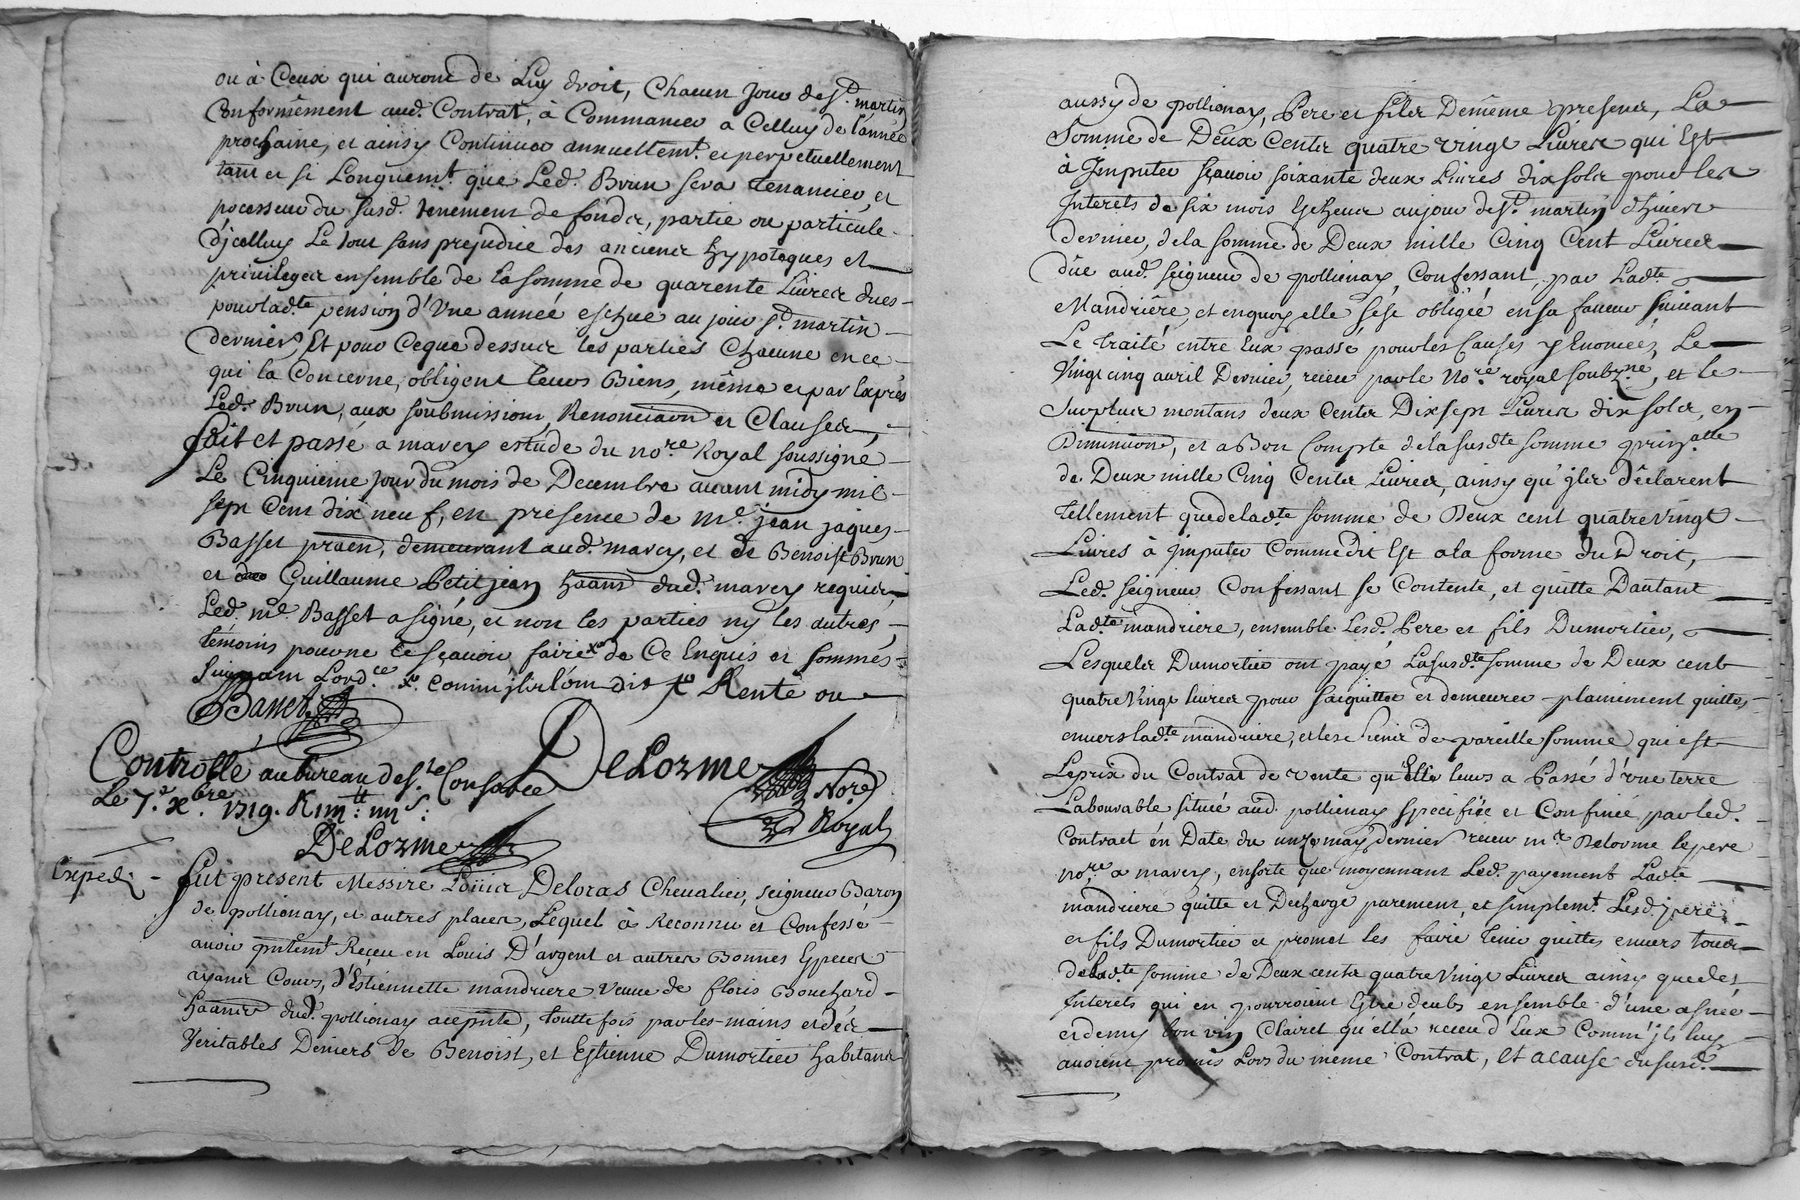 ou à Ceux qui auront de Luy droit, Chacun Jour de St. martin
Conformément aud. Contrat, à Commancer a Celluy de l'année
prochaine, et ainsy Continuer annuellemt. et perpetuellement
tant et si Longuemt. que Led. Brun sera tenancier, et
pocesseur du susd. tenement de fonds, partie ou particule
d'jcelluy Le tout sans prejudice des anciens hypoteques et
privileges ensemble de la somme de quarente Livres dues
pour lad.te pension d'Une année eschue au jour St. martin
dernier, Et pour Ceque dessus les parties Chacune en ce
qui la Concerne, obligent leurs Biens, même et par Exprès
Led. Brun, aux soubmissions, Renonciaon et Clauses,
fait et passé a marcy estude du no.re Royal soussigné
Le Cinquieme jour du mois de Decembre avant midy mil
sept Cent dix neuf, en presence de me. jean jaques
Basset praen, demeurant aud. marcy, et de Benoist Brun
et Guillaume Petitjean haans dud. marcy requis,
Led. me. Basset a signé, et non les parties ny les autres
témoins pour ne le sçavoir faire de Ce Enquis et sommés
suivant Lord.ce Comm'jls l'ont dit Rente ou
Basset
Controllé au bureau de s.te Consorce
Le 7.e xbre. 1719. R
DeLorme
No.re
Royal
DeLorme
Exped.
fut present Messire Loüis Deloras Chevalier, seigneur Baron
de pollionay, et autres places, Lequel à Reconnu et Confessé
avoir pntemt. Receu en Louis D'argent et autres Bonnes Especes
ayant Cours, d'Estiennette mandriere veuve de floris Bouchard
haante dud. pollionay acepnte, touttefois par les mains et des
Veritables Deniers de Benoist, et Estienne Dumortier habitans
aussy de pollionay, Pere et fils Demême presens, La
Somme de Deux Cents quatre vingt Livres qui Est
à Imputer sçavoir soixante deux Livres dix sols pour les
Interets de six mois Echeus au jour de St. martin d'hiver
dernier, de la somme de Deux mille Cinq Cent Livres
düe aud. seigneur de pollionay, Confessant, par Lad.te
Mandriere, et enquoy elle sest obligée en sa faveur suivant
Le traité entre Eux passé pour les Causes y Enoncées, Le
Vingt cinq avril Dernier, receu par le No.re royal soubz.né, et le
surplus montans deux Cents Dix sept Livres dix sols, en
Diminuon, et a Bon Compte de la susd.te somme prinz.alle
de Deux mille Cinq Cents Livres, ainsy qu'jls déclarent
tellement que de lad.te somme de Deux cent quatre vingt
Livres à Imputer Comme dit Est a la forme du Droit,
Led. seigneur Confessant se Contente, et quitte Dautant
Lad.te mandriere, ensemble Lesd. Pere et fils Dumortier,
Lesquels Dumortier ont payé La susd.te somme de Deux cent
quatre Vingt Livres pour s'aiquitter et demeurer plainement quittes
envers lad.te mandriere, et les tenir de pareille somme qui est
Le prix du Contrat de vente qu'Elle leurs a Passé d'vne terre
Labourable située aud. pollionay specifiée et Confinée par led.
Contract én Date du unze may dernier receu me. Delorme le pere
no.re a marcy, ensorte que moyennant Led. payement Lad.te
mandriere quitte et Decharge purement, et simplemt. Lesd. pere
et fils Dumortier et promet les faire tenir quittes envers tous
de lad.te somme de Deux cents quatre Vingt Livres ainsy que des
Interets qui en pourroient Estre deubs ensemble d'une asnée
et demy bon vin Clairet qu'ell'à receu d'Eux Comm'jls luy
avoient promis Lors du même Contrat, et acause dususd.